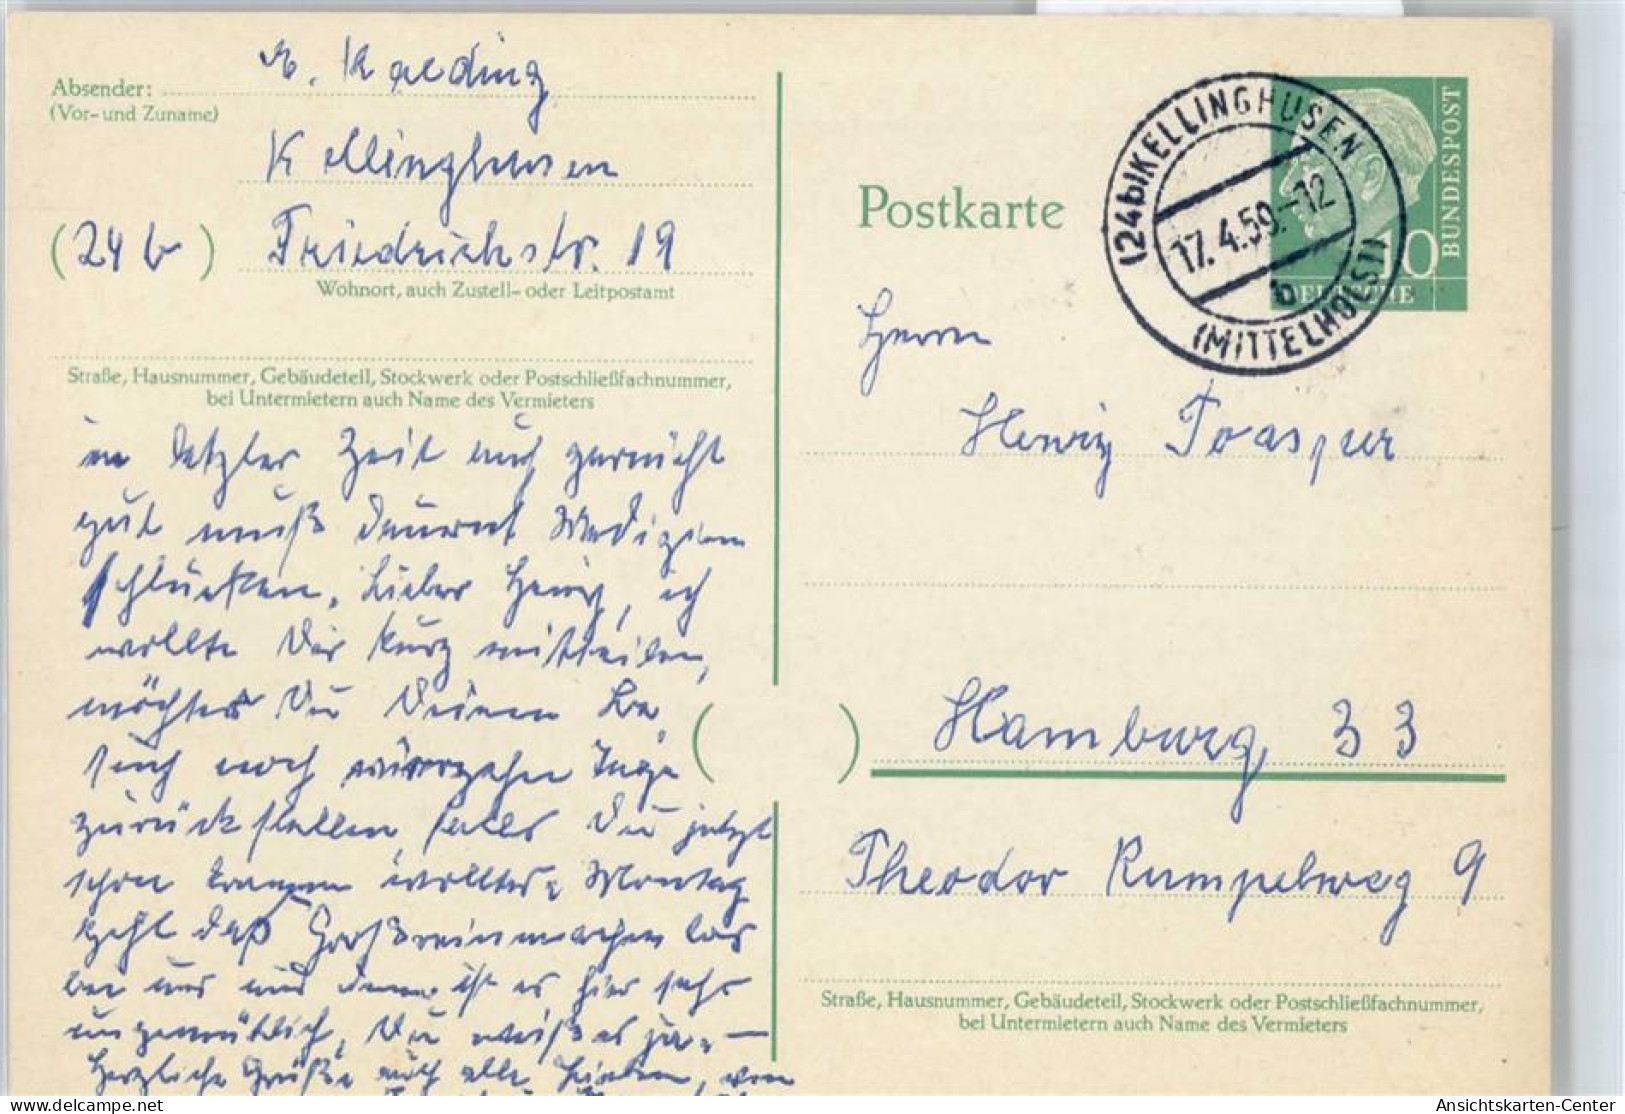 Absender: E. Kaeding
(Vor- und Zuname)
Kellinghusen
(24 b) Friedrichstr. 19
Wohnort, auch Zustell- oder Leitpostamt
Straße, Hausnummer, Gebäudeteil, Stockwerk oder Postschließfachnummer,
bei Untermietern auch Name des Vermieters
in letzter Zeit auch garnicht
gut muß dauernd Medizin
schlucken. Lieber Heinz, ich
wollte Dir kurz mitteilen,
möchtest Du Deinen Be
such noch vierzehn Tage
zurückstellen, falls Du jetzt
schon kommen wolltest, Montag
geht daß Großreinmachen los
bei uns und dann ist es hier sehr
ungemütlich, Du weißt es ja. —
Herzliche Grüße auch alle Lieben, von
Postkarte
(24b) KELLINGHUSEN
17.4.59.-12
b
(MITTELHOLST)
DEUTSCHE BUNDESPOST
10
Herrn
Heinz Toasper
Hamburg 33
Theodor Rumpelweg 9
Straße, Hausnummer, Gebäudeteil, Stockwerk oder Postschließfachnummer,
bei Untermietern auch Name des Vermieters
delcampe.net
Ansichtskarten-Center